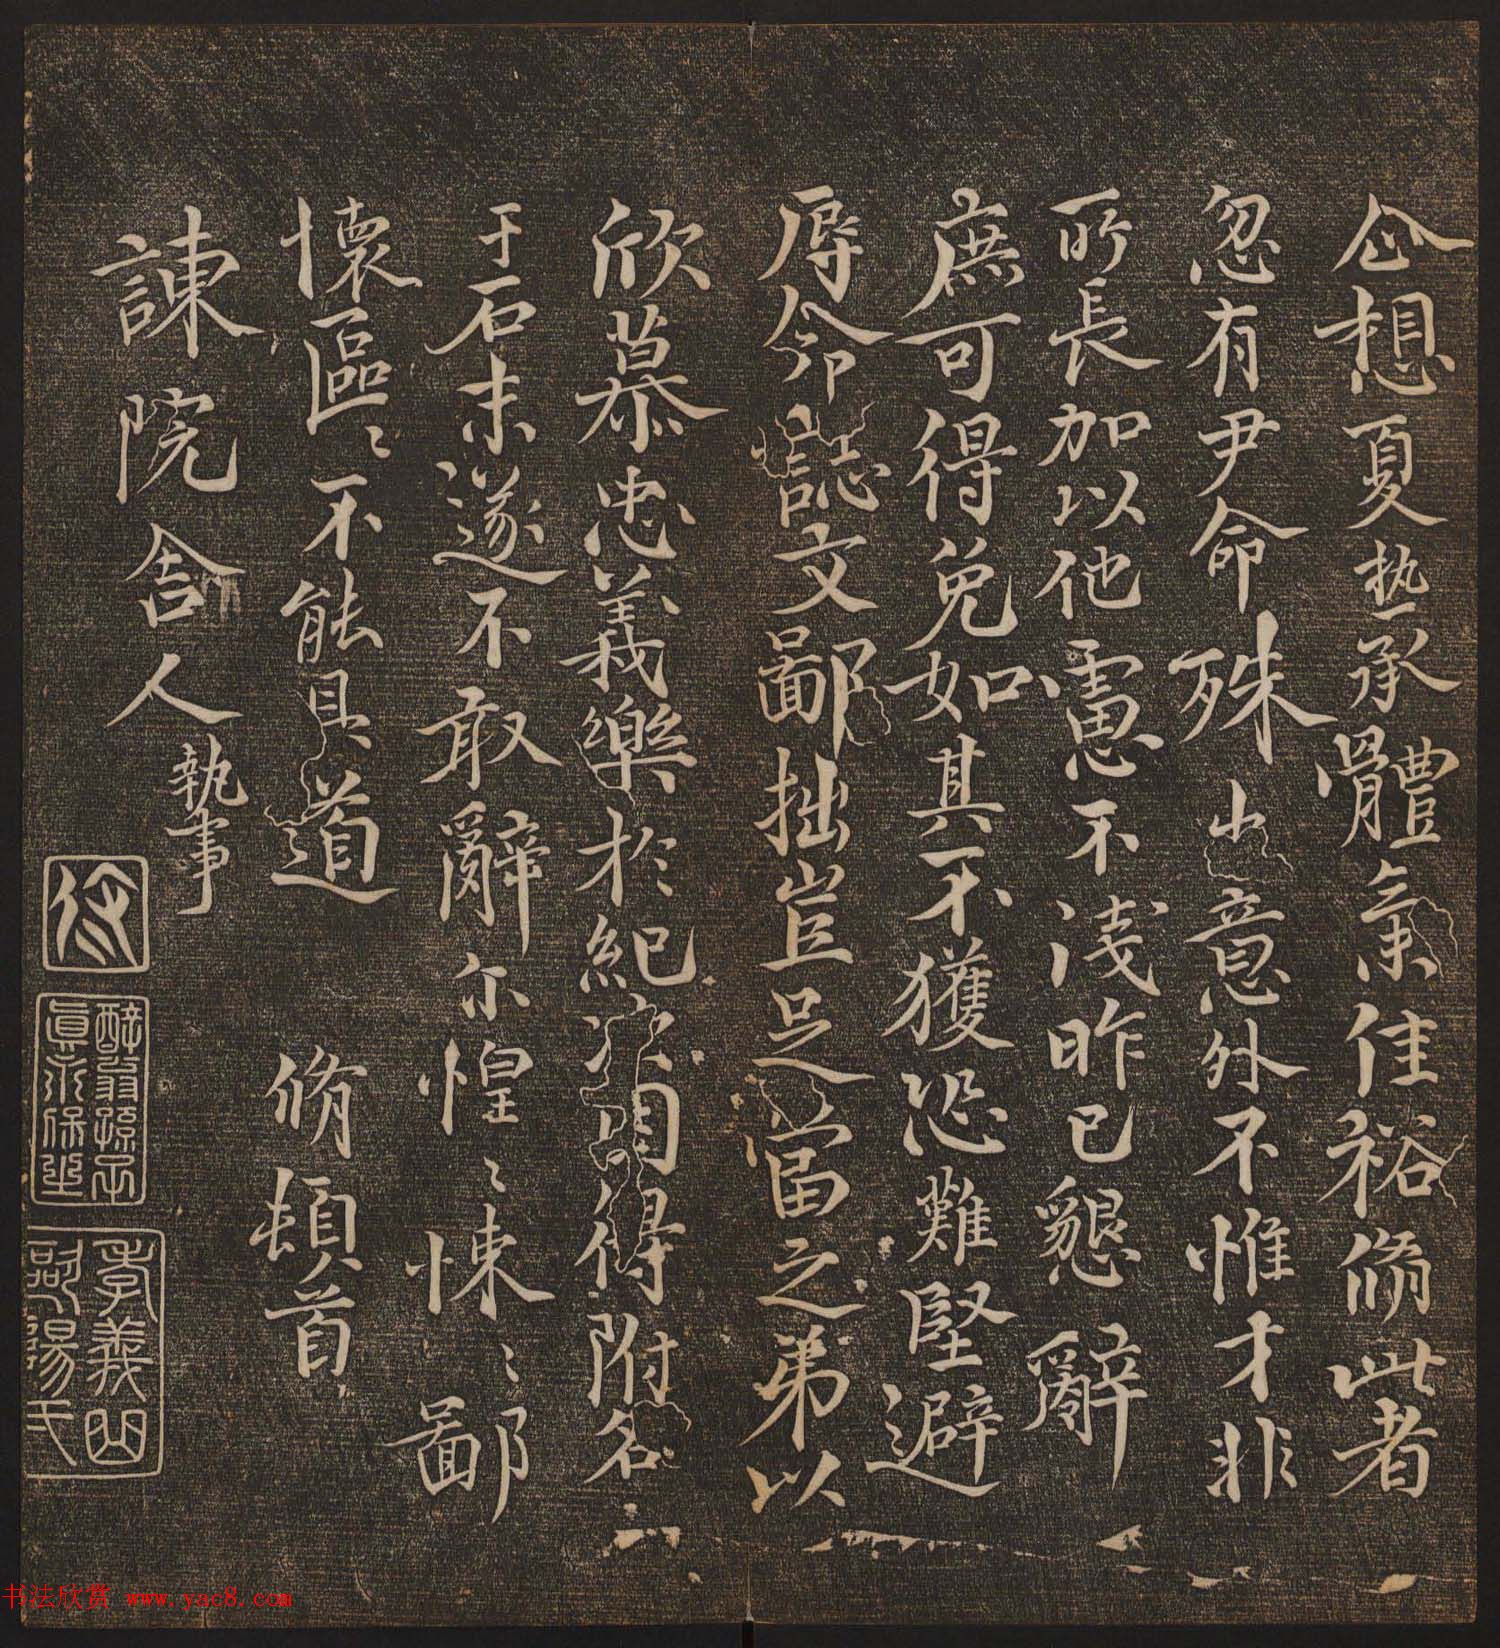 企想夏热承體氣佳裕脩此者
忽有尹命殊出意外不惟才非
所長加以他慮不淺昨已懇辭
庶可得免如其不獲恐難堅避
辱命誌文鄙拙豈足當之弟以
欣慕忠義樂於紀次因得附名
于石未遂不敢辭尔惶〻悚〻鄙
懷區〻不能具道 脩頓首
諫院舍人執事
醉翁孫子
真永保之
李義山
歐陽氏
书法欣赏 www.yac8.com